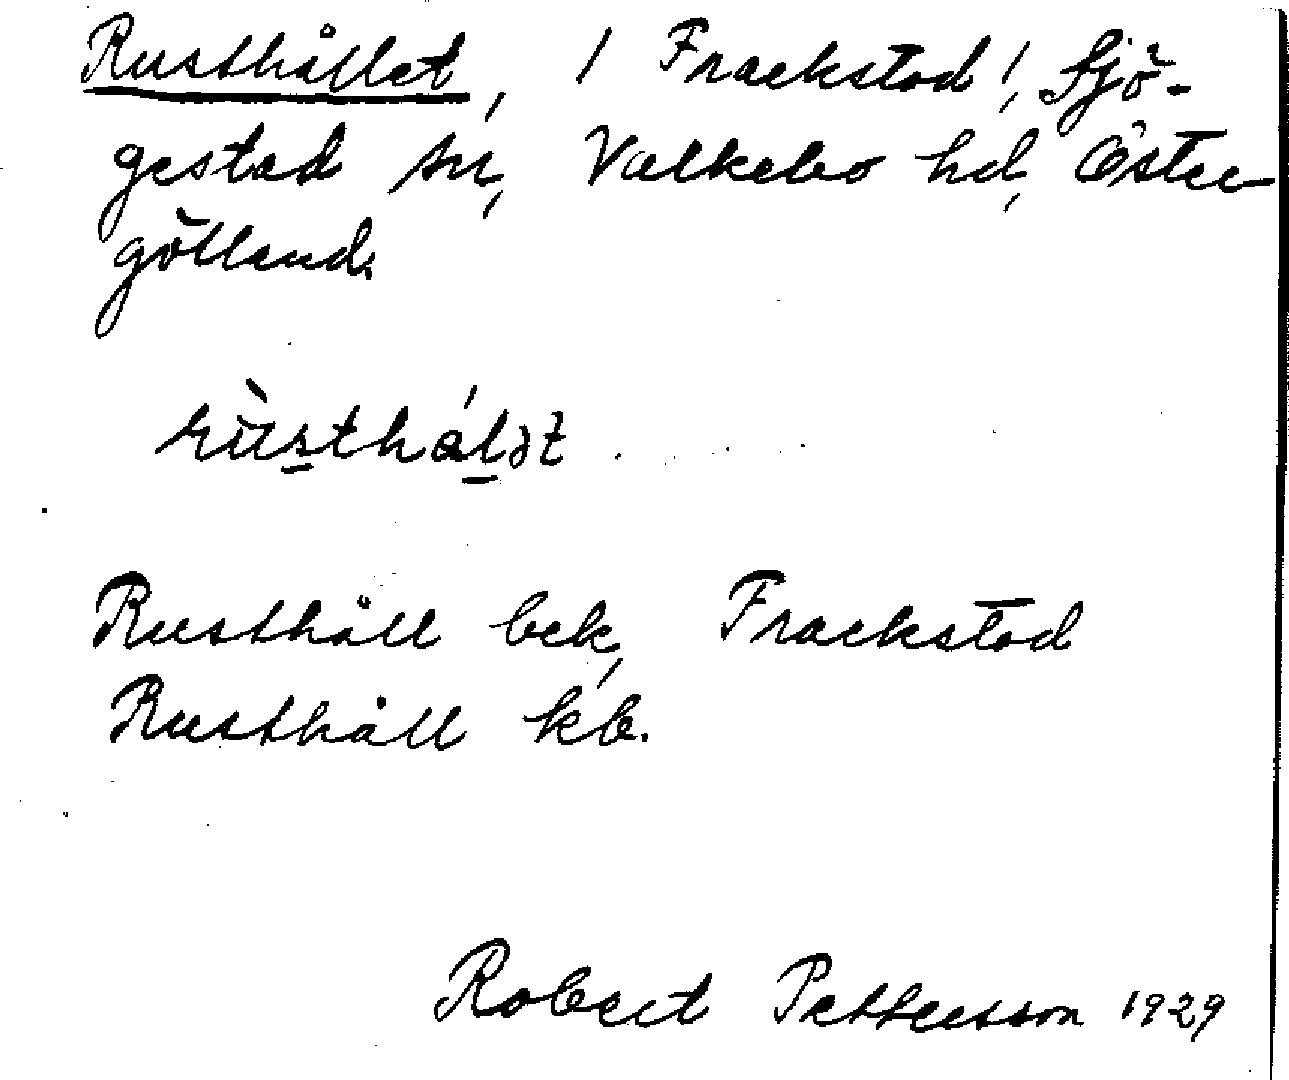 Rusthållet, / Frackstad /, Sjö-
gestad sn, Valkebo hd, Öster-
götland.
rùsthálət
Rusthåll bek, Frackstad
Rusthåll kb.
Robert Pettersson 1929